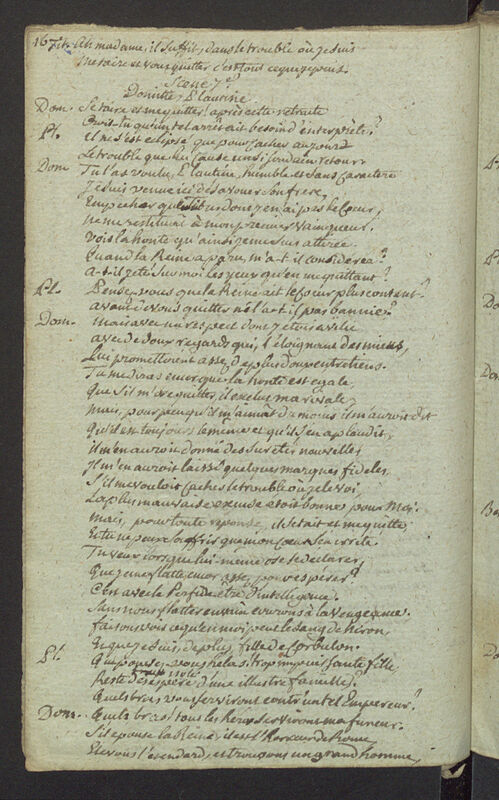 16 Tit. Ah madame, il suffit, dans le trouble où je suis
me taire et vous quitter c'est tout ce que je puis.
Scene 7e
Domitie, Plautine
Dom. Se taire et me quitter! après cette retraite
Crois-tu qu'un tel arrêt ait besoin d'interprète?
Pl. il ne s'est eclipsé que pour cacher au jour
Le trouble que lui cause un si soudain retour
Dom. Tu l'as voulu, Plautine, humble et sans caractere
Je suis venue ici desavouer son frere,
Empecher que Titus dont j'en ai pas le coeur,
ne me restituât à mon premier vainqueur.
Vois la honte qu'ainsi je me suis attirée
Quand la Reine a paru, m'a-t-il considerée?
A-t-il jeté sur moi les yeux qu'en me quittant?
Pl. Pensez-vous que la Reine ait le coeur plus content?
avant de vous quitter ne l'a-t-il pas bannie?
Dom. mais avec un respect dont j'étois avilie
avec de doux regards qui, l'eloignant des miens,
Lui promettoient assez de plus doux entretiens.
Tu me diras encor que la honte est egale,
Que s'il m'ose quitter, il exclut ma rivale;
mais, pour peu qu'il m'aimât du moins il m'auroit dit
Qu'il est toujours le même et qu'il s'en aplaudit,
il m'en auroit donné des suretés nouvelles
Il m'en auroit laissé quelques marques fideles
S'il me vouloit cacher le trouble où je le voi,
La plus mauvaise excuse étoit bonne pour moi.
mais, pour toute reponse, il se tait et me quitte
Et tu ne peux souffrir que mon coeur s'en irrite
Tu veux lorsque lui-même ose se declarer,
Que je me flatte encor assez pour esperer?
C'est avec le Perfide être d'intelligence.
Sans nous flatter en vain courons à la vengeance.
faisons voir ce qu'en moi peut le sang de Neron
Et que je suis, de plus, fille de Corbulon.
Pl. Que pouvez-vous, helas! trop impuissante fille
Reste desespéré d'une illustre famille?
Quels bras vous serviront contr'un tel Empereur?
Dom. Quels bras? tous les Heros serviront ma fureur.
S'il epouse la Reine, il est l'horreur de Rome,
Elevons l'etendard, et trouvons un grand homme,